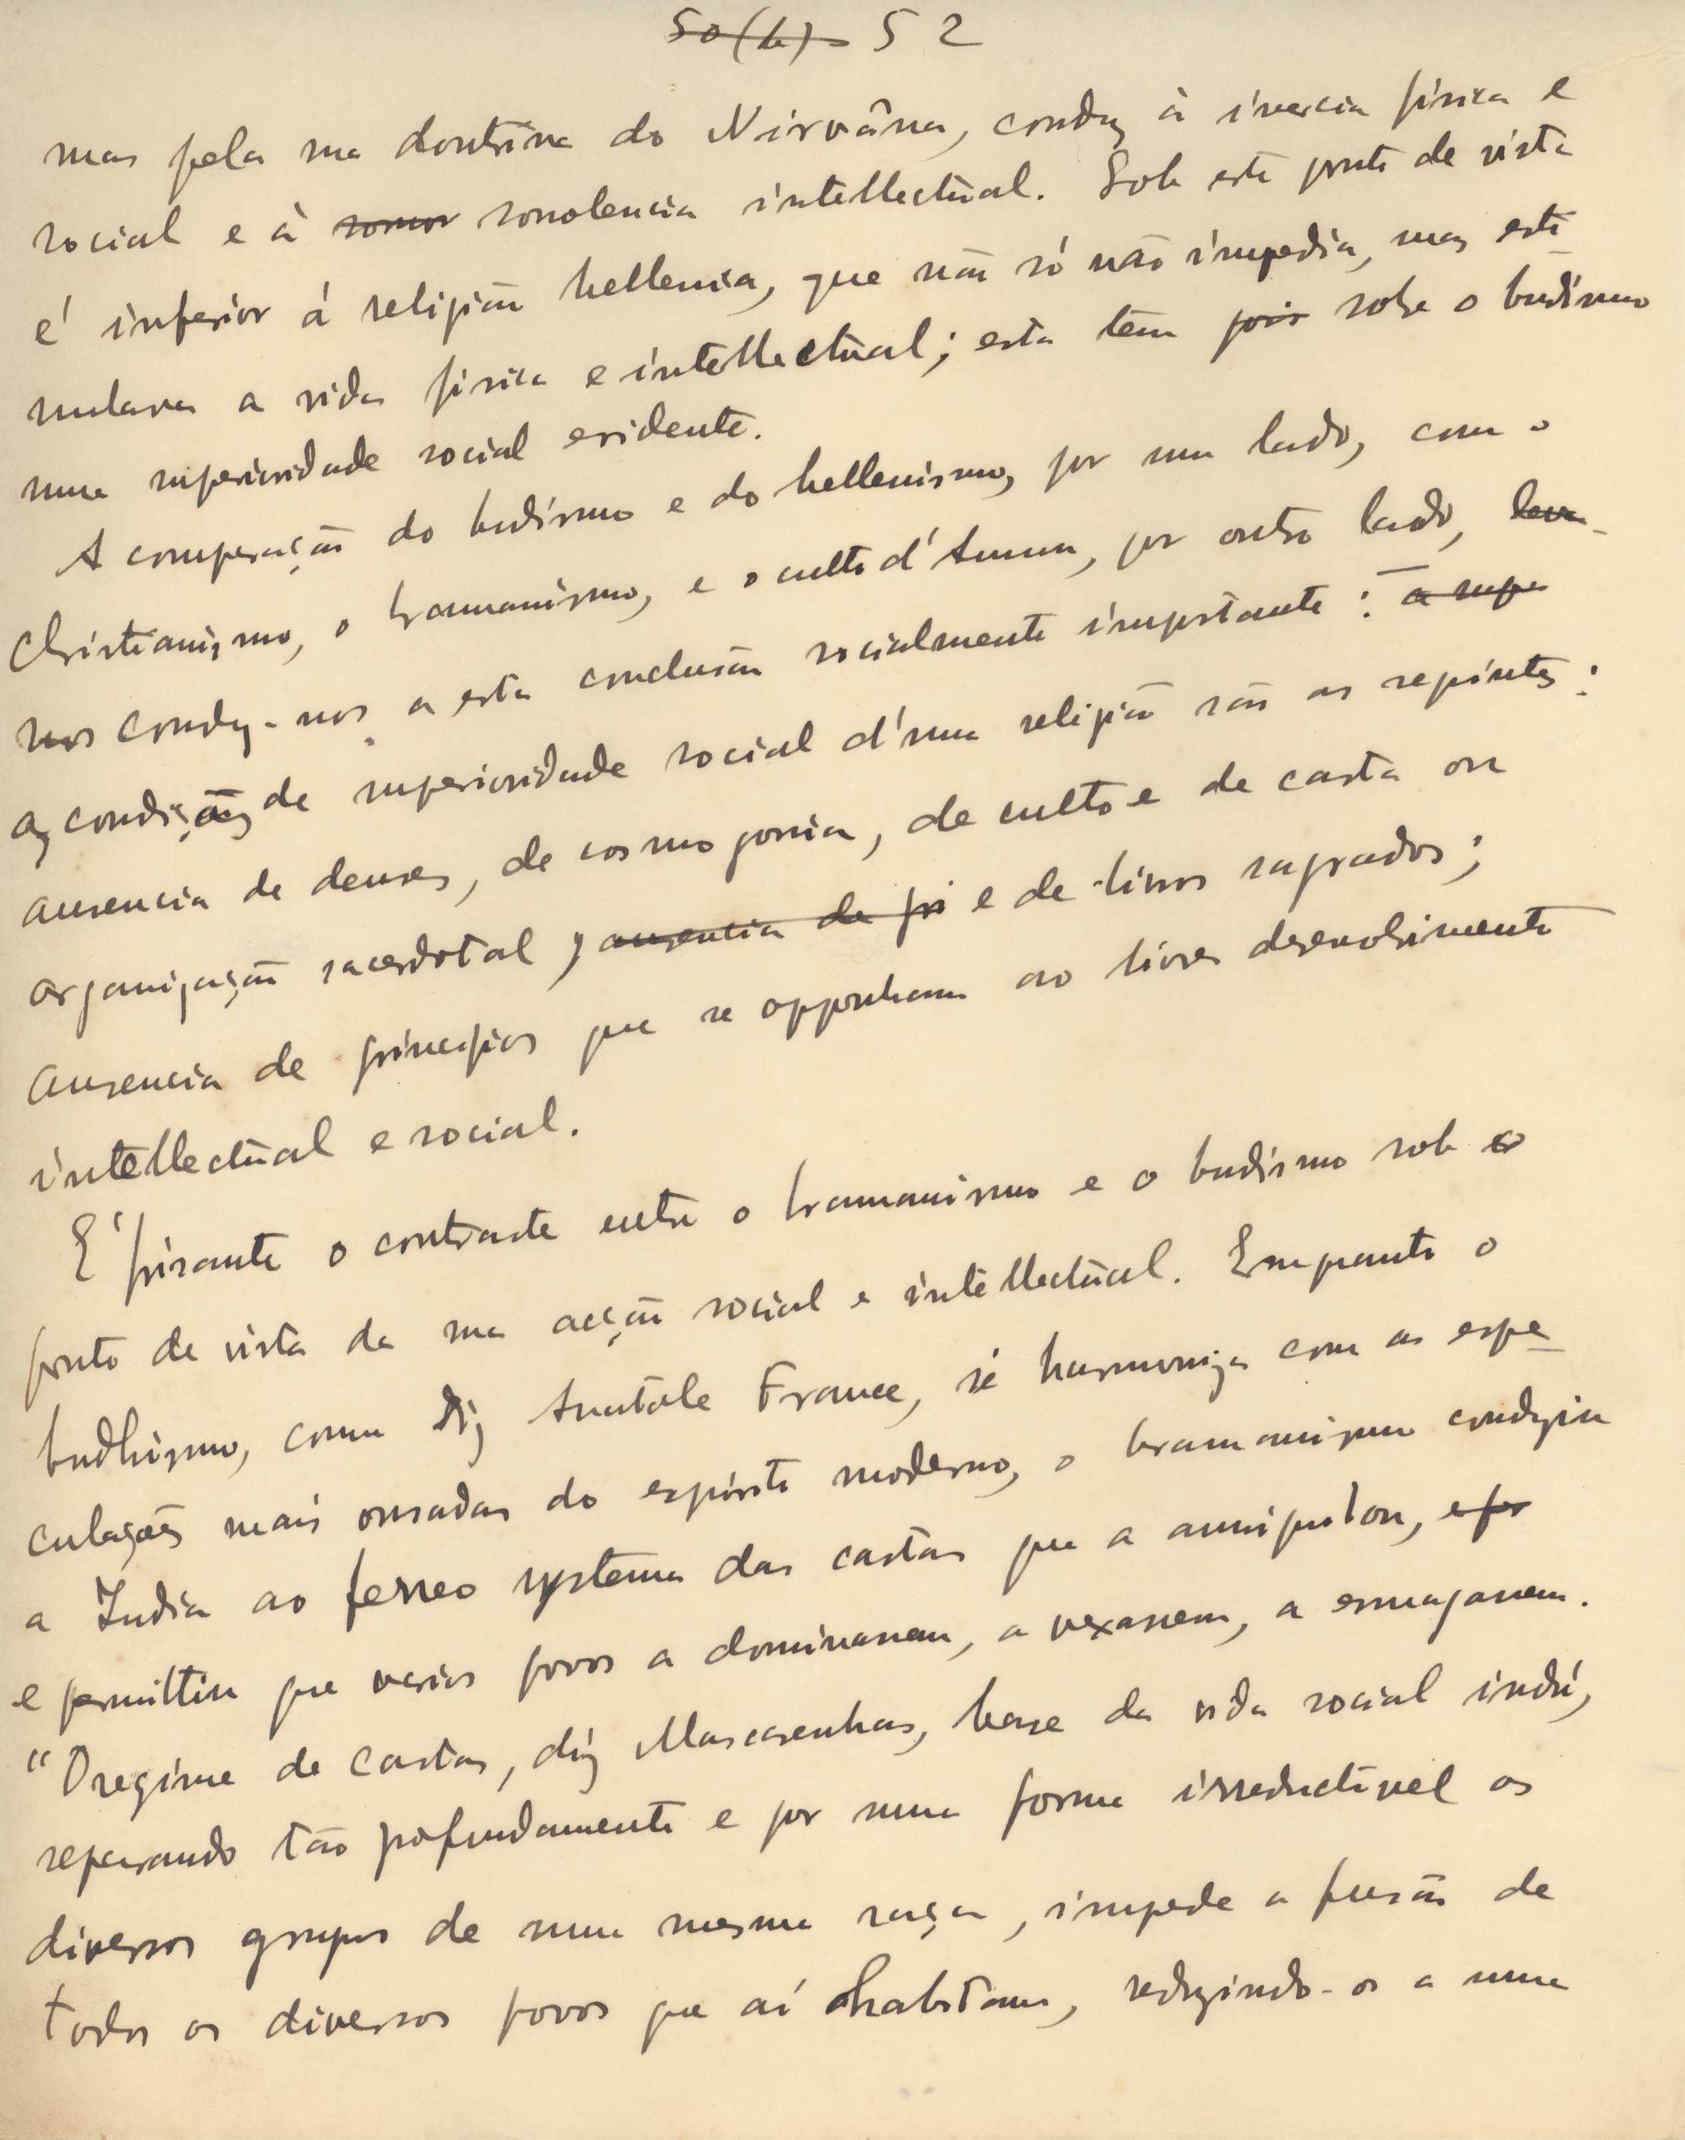 50(b) 52
mas pela sua doutrina do Nirvâna, conduz à inercia fisica e
social e à somor sonolencia intellectual. Sob este ponto de vista
é inferior á religião hellenica, que não só não impedia, mas esti-
mulava a vida fisica e intellectual; esta tem pois sobre o budismo
uma superioridade social evidente.
A comparação do budismo e do hellenismo, por um lado, com o
Christianismo, o bramanismo, e o culto d'Ammon, por outro lado, leva-
nos conduz-nos a esta conclusão socialmente importante: – a supe
as condições de superioridade social d'uma religião são as seguintes:
ausencia de deuses, de cosmogonia, de culto e de casta ou
organização sacerdotal, ausencia de pri e de livros sagrados;
ausencia de principios que se opponham ao livre desenvolvimento
intellectual e social.
É frisante o contraste entre o bramanismo e o budismo sob o
ponto de vista da sua acção social e intellectual. Emquanto o
budhismo, como diz Anatole France, se harmoniza com as espe-
culações mais ousadas do espirito moderno, o bramanismo conduziu
a India ao ferreo systema das castas que a aniquilou, e per
e permittiu que varios povos a dominassem, a vexassem, a esmagassem.
"O regime de castas, diz Mascarenhas, base da vida social indú,
separando tão profundamente e por uma forma irreductivel os
diversos grupos de uma mesma raça, impede a fusão de
todos os diversos povos que aí habitam, reduzindo-os a uma